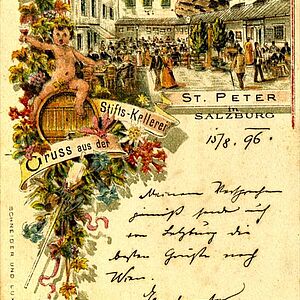 ST. PETER
in
SALZBURG
Stifts-Kellerei
Gruss aus der
15/8. 96.
Meinem Versprechen
gemäß sende ich
von Salzburg die
besten Grüße nach
Wien.
SCHNEIDER UND LUX